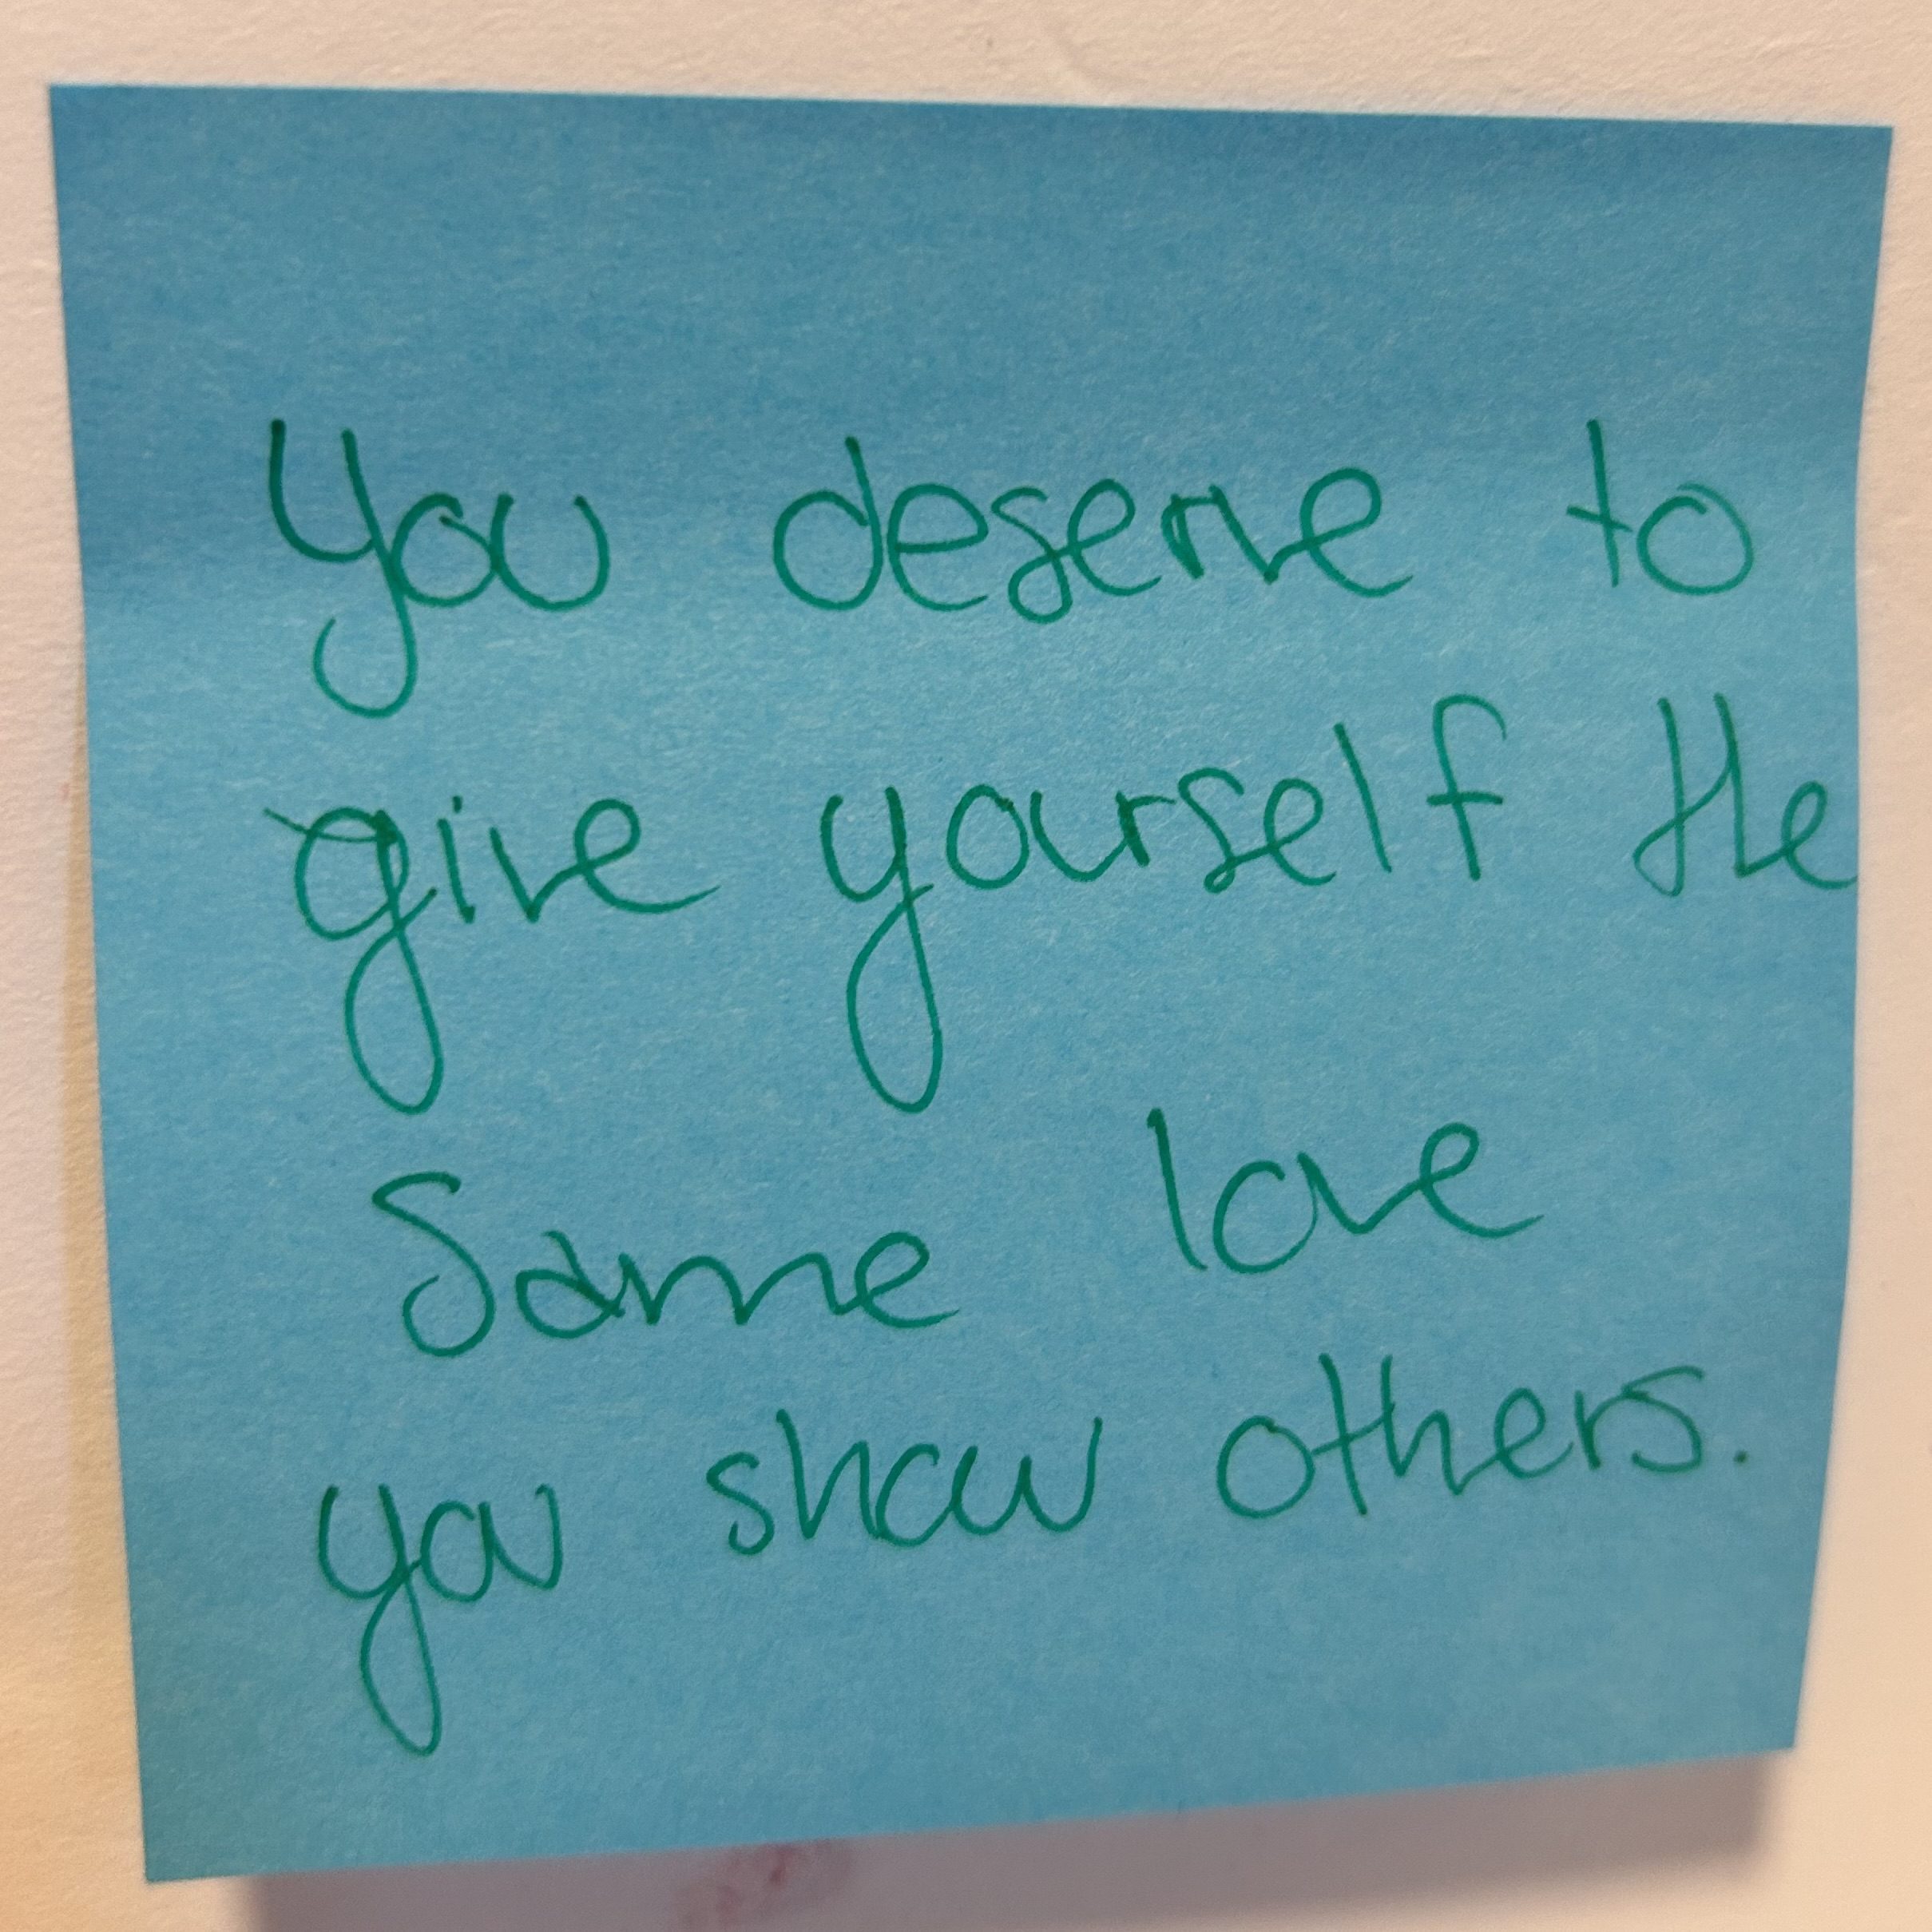 You deserve to
give yourself the
Same love
you show others.